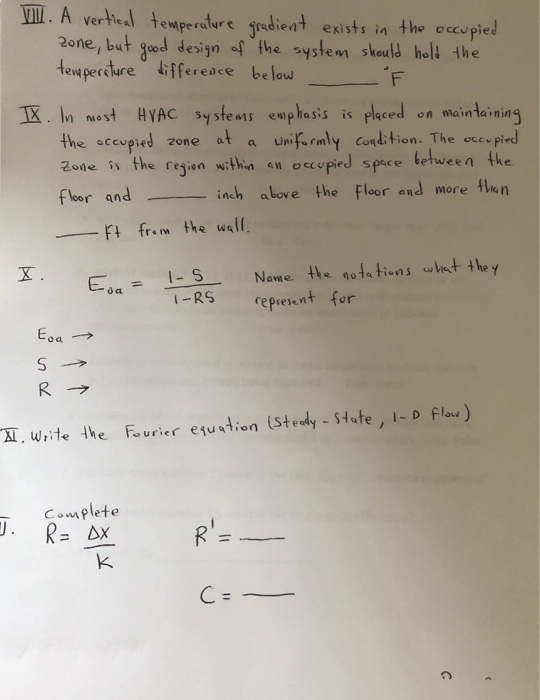 VIII. A vertical temperature gradient exists in the occupied
zone, but good design of the system should hold the
temperature difference below ____ °F
IX. In most HVAC systems emphasis is placed on maintaining
the occupied zone at a uniformly condition. The occupied
zone is the region within an occupied space between the
floor and ____ inch above the floor and more than
____ ft from the wall.
X. Eoa = (1-S)/(1-RS) Name the notations what they
represent for
Eoa →
S →
R →
XI. Write the Fourier equation (Steady-State, 1-D flow)
Complete
R = Δx/k R' = ____
C = ____